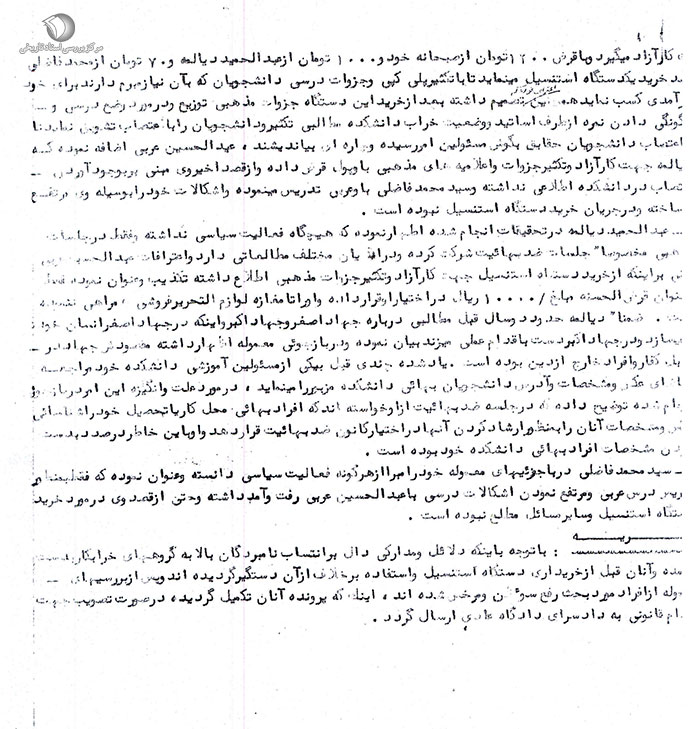 مرکز بررسی اسناد تاریخی
کار آزاد میگیرد و با قرض ۱۲۰۰ تومان از صبحانه خود و ۱۰۰۰ تومان از عبدالحمید دیالمه و ۷۰ تومان از محمد فاضلی
خرید یکدستگاه استنسیل مینماید تا با تکثیر پلی کپی و جزوات درسی دانشجویان که بآن نیاز مبرم دارند برای خود
درآمدی کسب نماید تصمیم داشته بعد از خرید این دستگاه جزوات مذهبی توزیع و در مورد وضع درسی و
چگونگی دادن نمره از طرف اساتید و وضعیت خراب دانشکده مطالبی تکثیر و دانشجویان را باعتصاب تشویق نماید تا
اعتصاب دانشجویان حقایق بگوش مسئولین امر رسیده و چاره ای بیاندیشند ، عبدالحسین عربی اضافه نموده که
دیالمه جهت کار آزاد و تکثیر جزوات و اعلامیه های مذهبی باو پول قرض داده و از قصد اخیر وی مبنی بر بوجود آوردن
اعتصاب در دانشکده اطلاعی نداشته و سید محمد فاضلی با و عربی تدریس مینموده و اشکالات خود را بوسیله وی مرتفع
ساخته و در جریان خرید دستگاه استنسیل نبوده است .
عبدالحمید دیالمه در تحقیقات انجام شده اظهار نموده که هیچگاه فعالیت سیاسی نداشته و فقط در جلسات
مذهبی مخصوصا" جلسات ضد بهائیت شرکت کرده و در ادیان مختلف مطالعاتی دارد و اعترافات عبدالحسین عربی
مبنی بر اینکه از خرید دستگاه استنسیل جهت کار آزاد و تکثیر جزوات مذهبی اطلاع داشته تکذیب و عنوان نموده فقط
بعنوان قرض الحسنه مبلغ ۱۰۰۰۰/ ریال در اختیار او قرار داده و او را تا مغازه لوازم التحریر فروشی همراهی نموده
است . ضمنا" دیالمه حدود دو سال قبل مطالبی درباره جهاد اصغر و جهاد اکبر و اینکه در جهاد اصغر انسان خود را
میسازد و در جهاد اکبر دست باقدام عملی میزند بیان نموده و در بازجوئی معموله اظهار داشته مقصود از جهاد
کفار و افراد خارج از دین بوده است . یاد شده چندی قبل بیکی از مسئولین آموزشی دانشکده خود مراجعه
عکس و مشخصات و آدرس دانشجویان بهائی دانشکده مزبور را مینماید ، در مورد علت و انگیزه این امر در بازجوئی
انجام شده توضیح داده که در جلسه ضد بهائیت از او خواسته اند که افراد بهائی محل کار یا تحصیل خود را شناسائی
و مشخصات آنان را بمنظور ارشاد کردن آنها در اختیار کانون ضد بهائیت قرار دهد و او باین خاطر در صدد بدست
آوردن مشخصات افراد بهائی دانشکده خود بوده است .
سید محمد فاضلی در بازجوئیهای معموله خود را مبرا از هرگونه فعالیت سیاسی دانسته و عنوان نموده که فقط بمنظور
تدریس درس عربی و مرتفع نمودن اشکالات درسی با عبدالحسین عربی رفت و آمد داشته و حتی از قصد وی در مورد خرید
دستگاه استنسیل و سایر مسائل مطلع نبوده است .
نظریه : با توجه باینکه دلائل و مدارکی دال بر انتساب نامبردگان بالا به گروههای خرابکار بدست
نیامده و آنان قبل از خریداری دستگاه استنسیل و استفاده بر خلاف از آن دستگیر گردیده اند و پس از بررسیهای
معموله از افراد مورد بحث رفع سوءظن و مرخص شده اند ، اینک که پرونده آنان تکمیل گردیده در صورت تصویب جهت
اقدام قانونی به دادسرای دادگاه عادی ارسال گردد .